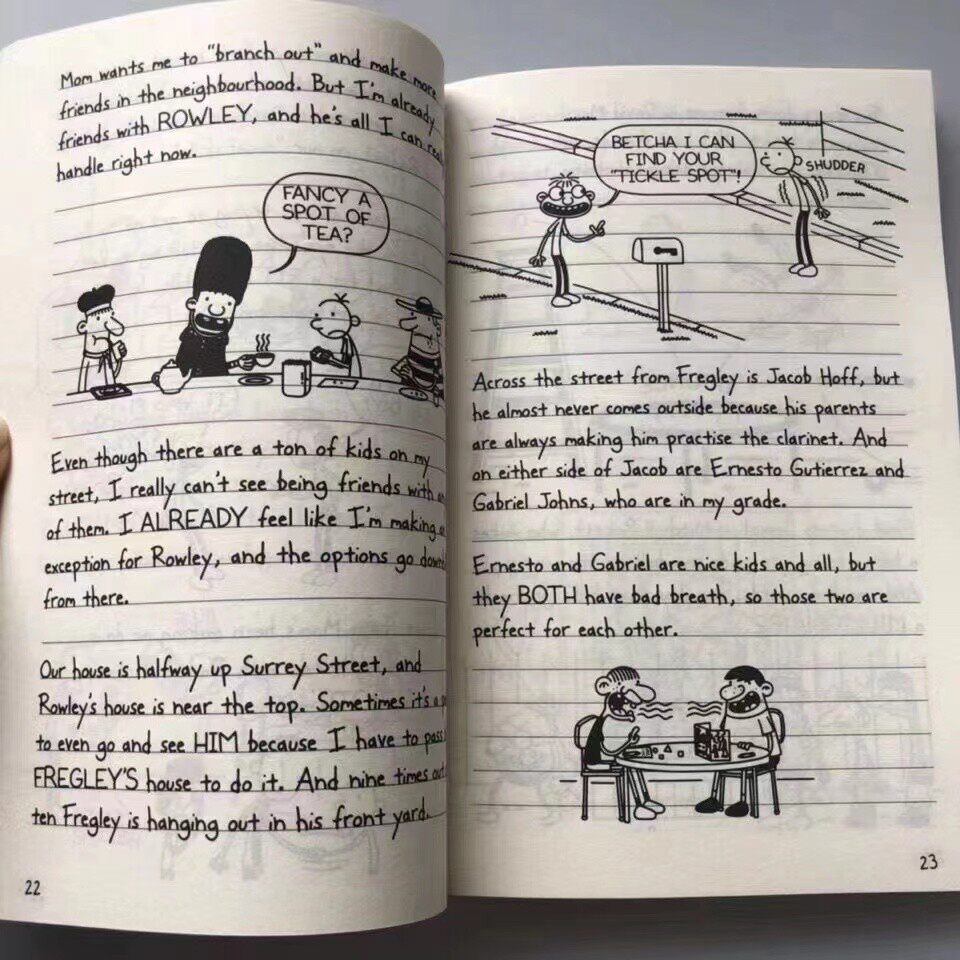 Mom wants me to "branch out" and make more
friends in the neighbourhood. But I'm already
friends with ROWLEY, and he's all I can
handle right now.
FANCY A
SPOT OF
TEA?
Even though there are a ton of kids on my
street, I really can't see being friends with
of them. I ALREADY feel like I'm making
exception for Rowley, and the options go
from there.
Our house is halfway up Surrey Street, and
Rowley's house is near the top. Sometimes it's a
to even go and see HIM because I have to pass
FREGLEY'S house to do it. And nine times out
ten Fregley is hanging out in his front yard.
22
BETCHA I CAN
FIND YOUR
"TICKLE SPOT"!
SHUDDER
Across the street from Fregley is Jacob Hoff, but
he almost never comes outside because his parents
are always making him practise the clarinet. And
on either side of Jacob are Ernesto Gutierrez and
Gabriel Johns, who are in my grade.
Ernesto and Gabriel are nice kids and all, but
they BOTH have bad breath, so those two are
perfect for each other.
23